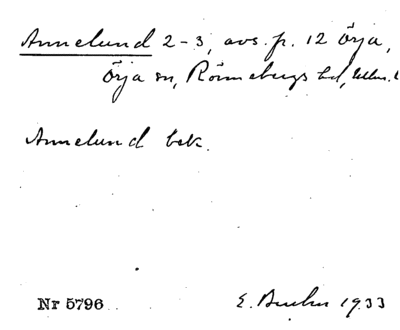 Annelund 2-3, avs. fr. 12 Örja,
Örja sn, Rönnebergs hd,
Annelund bek.
Nr 5796 E. 1933